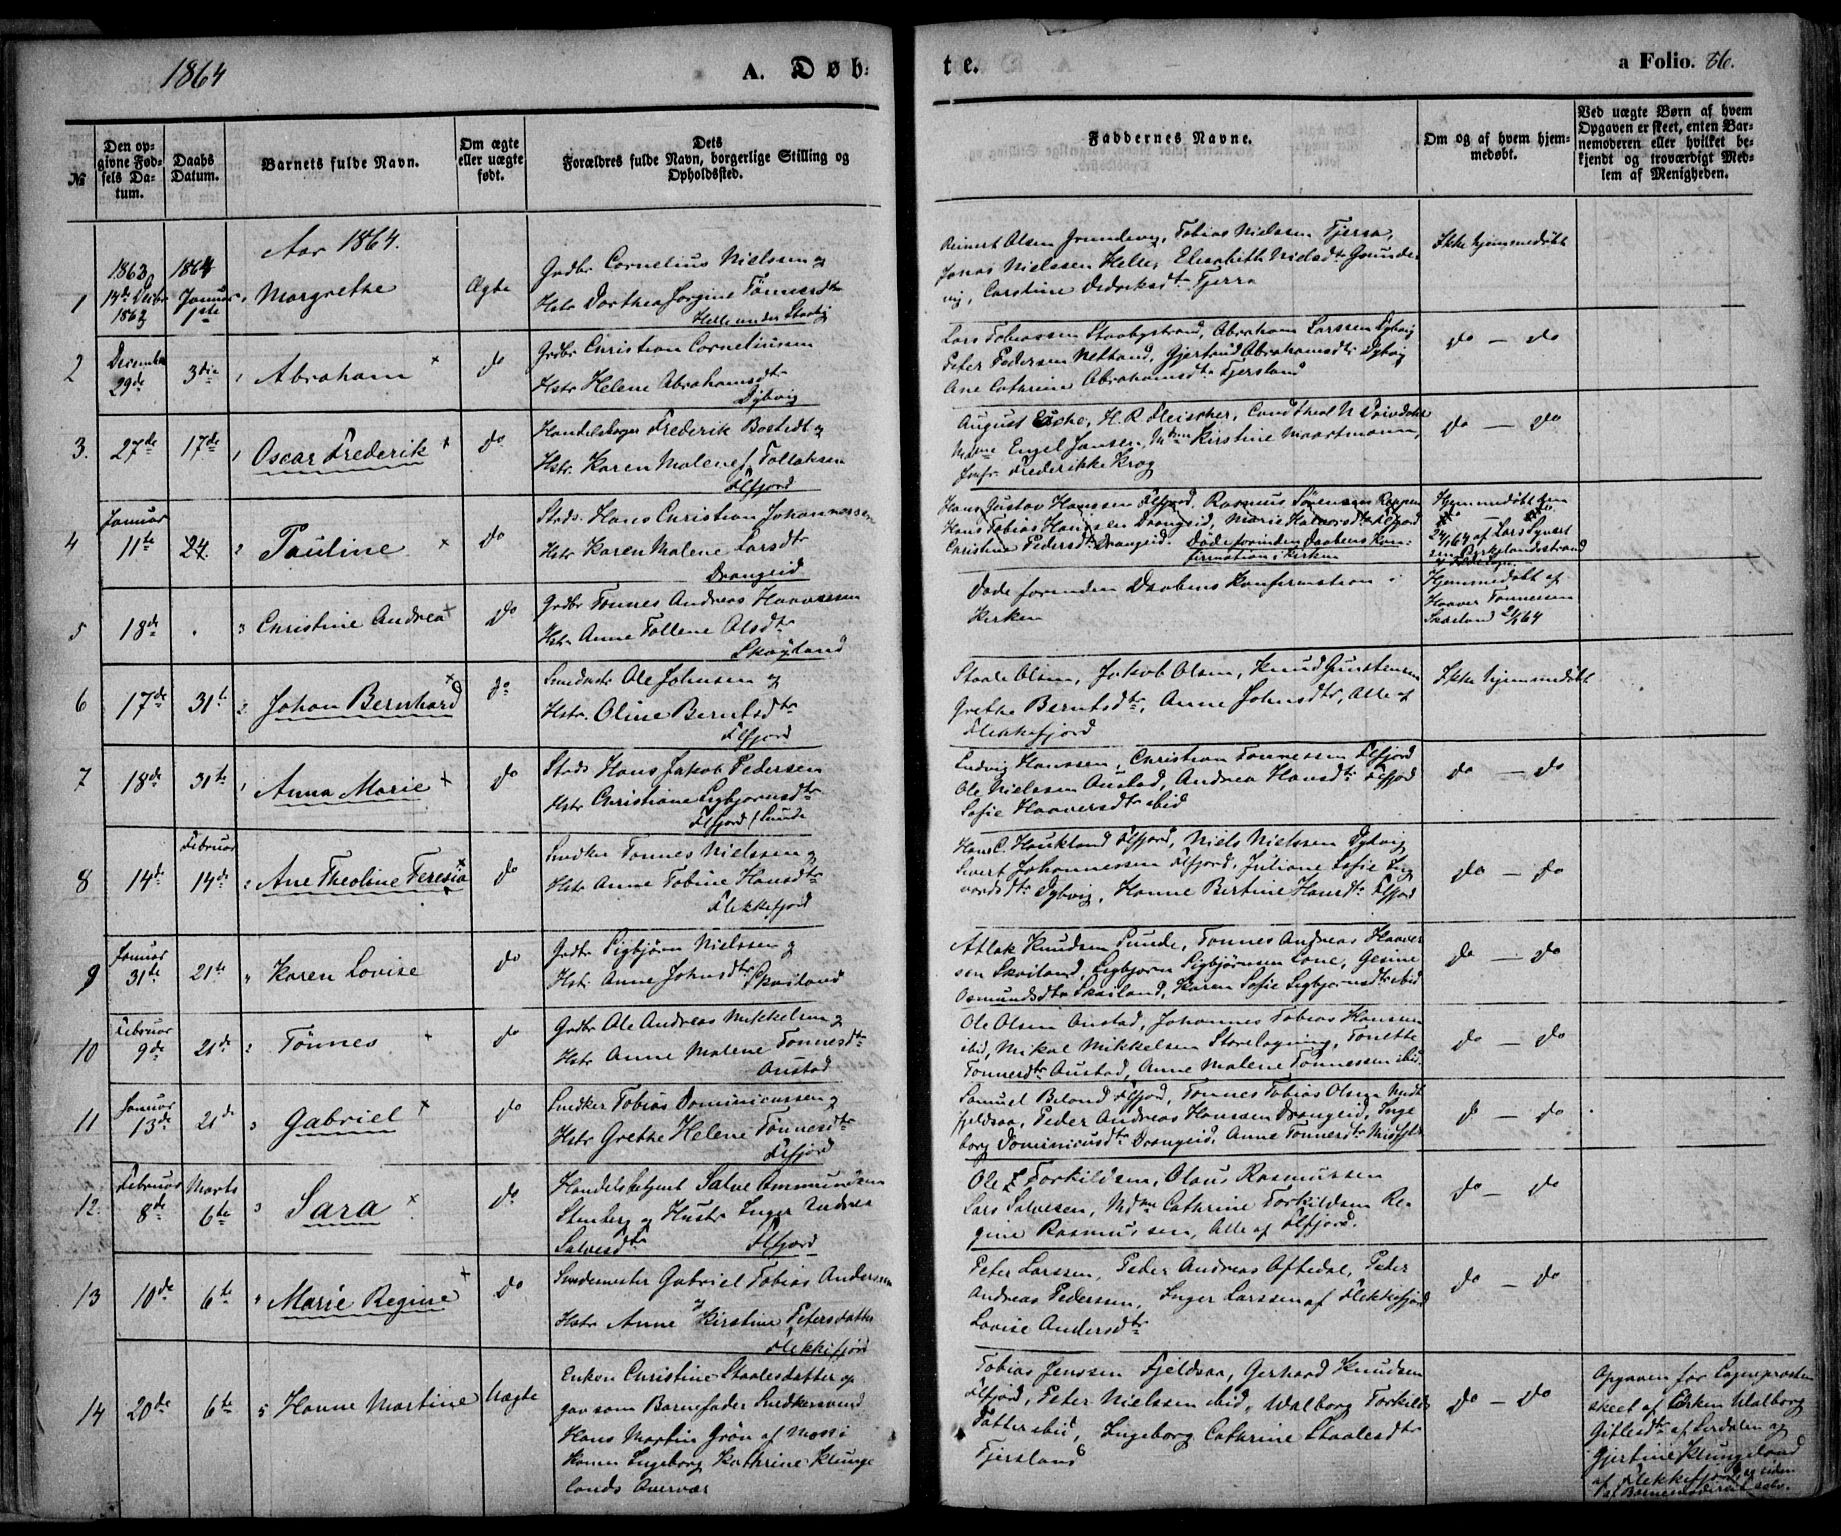 1864
A. Døb-
te.
a Folio. 86.
№
Den opgivne Fødsels Datum.
Daabs Datum.
Barnets fulde Navn.
Om ægte eller uægte født.
Dets Forældres fulde Navn, borgerlige Stilling og Opholdssted.
Faddernes Navne.
Om og af hvem hjemmedøbt.
Ved uægte Børn af hvem Opgaven er skeet, enten Barnemoderen eller hvilket bekjendt og troværdigt Medlem af Menigheden.
Aar 1864.
1
1863
14de Decbr
1863
1864
Januar
1ste
Margrethe
Ægte
Grdbr Cornelius Nielssen og
Hstr Dorthea Jorgine Tönnesdtr
Helle under Stavig
Reinert Olsen Grundevig, Tobias Nielssen Fjersa,
Jonas Nielssen Helle, Elisabeth Nielsdtr Grunde
vig, Carstine Dideriksdtr Fjersa
Ikke hjemmedøbt
2
December
29de
3die
Abraham
do
Grdbr Christian Corneliussen
Hstr Helene Abrahamsdtr
Dybvig
Lars Tobiassen Staabystrand, Abraham Larssen Dybvig
Peter Pedersen Netland, Gjertrud Abrahamsdtr Dybvig
Ane Cathrine Abrahamsdtr Fjersland
do — do
3.
27de
17de
Oscar Frederik
do
Handelsborger Frederik Bostedt og
Hstr. Karen Malene f. Tollaksen
Flfjord
August Esche, H. R. Fleischer, Cand theol N.
Mdme Engel Jansen, Mdme Kirstine Maartmann,
Jomfr Frederikke Krog
do — do
4
Januar
11te
24
Pauline
do
Strds. Hans Christian Johannessen
Hstr Karen Malene Larsdtr
Drangeid
Hans Gustav Hanssen Flfjord. Rasmus Sörensen
Hans Tobias Hanssen Drangeid, Marie Halvorsdtr Flfjord
Christine Pedersdtr Drangeid. Døde forinden Daabens Kon-
firmation i Kirken
Hjemmedøbt den
24/1 64 af Lars
Birkelandsstrand
5
18de
Christine Andrea
do
Grdbr Tönnes Andreas Haaversen
Hstr Anne Tollene Olsdtr
Skogland
Døde forinden Daabens Konfirmation i
Kirken
Hjemmedøbt af
Haaver Tønnesen
Skaeland 2/64
6
17de
31te
Johan Bernhard
do
Smedmstr Ole Johnsen og
Hstr. Oline Berntsdtr
Flfjord
Staale Olsen, Jakob Olsen, Knud Gunstensen
Grethe Berntsdtr, Anne Johnsdtr, Alle af
Flekkefjord
Ikke hjemmedøbt
7
18de
31te
Anna Marie
do
Strds Hans Jakob Pedersen
Hstr Christiane Sigbjørnsdtr
Flfjord / Sunde
Ludvig Hanssen, Christian Tønnessen Flfjord
Ole Nielssen Austad, Andrea Hansdtr Flfjord
Sofie Haaversdtr ibid
do — do
8
14de
Februar
14de
Ane Theoline Teresia
do
Snedker Tönnes Nielssen og
Hstr Anne Tobine Hansdtr
Flekkefjord
Hans C. Haukland Flfjord, Niels Nielssen Dybvig
Sivert Johannessen Flfjord, Juliane Sofie Sig
vardsdtr Dybvig, Hanne Bertine Hansdtr Flfjord
do — do
9
Januar
31te
21te
Karen Lovise
do
Grdbr Sigbjörn Nielssen og
Hstr. Anne Johnsdtr Skailand
Atlak Knudsen Sunde, Tönnes Andreas Haaver
sen Skailand, Sigbjørn Sigbjørnsen Lone, Gesine
Osmundsdtr Skailand, Karen Sofie Sigbjørnsdtr ibid
do — do
10
Februar
9de
21de
Tönnes
do
Grdbr Ole Andreas Mikkelsen og
Hstr Anne Malene Tönnesdtr
Austad
Ole Olsen Austad, Johannes Tobias Hanssen
ibid, Mikal Mikkelsen Storelögning, Tonette
Tönnesdtr Austad, Anne Malene Tönnessen ibid
do — do
11
Januar
13de
21de
Gabriel
do
Snedker Tobias Dominicussen og
Hstr Grethe Helene Tönnesdtr
Flfjord
Samuel Beland Flfjord, Tönnes Tobias Olsen Midt
fjeldsaa, Peder Andreas Hanssen Drangeid, Inge
borg Dominicusdtr Drangeid, Anne Tönnesdtr
do — do
12.
Februar
8de
Marts
6te
Sara
do
Handelsbetjent Salve Ommundsen
Stenberg og Hustr Inger Andrea
Salvesdtr Flfjord
Ole Z Torkildsen, Olaus Rasmussen
Lars Salvesen, Mdme Cathrine Torkildsen Re-
gine Rasmussen, Alle af Flfjord.
do — do
13
10de
6te
Marie Regine
do
Smedemester Gabriel Tobias Anderssen
og
Hstr Anne Kirstine Petersdatter
Flekkefjord
Peter Larssen, Peder Andreas Aftedal, Peder
Andreas Pederssen, Inger Larssen af Flekkefjord
Lovise Andersdtr
do — do
14
20de
6te
Hanne Martine
Uægte
Enken Christine Staalesdatter op
gav som Barnefader Snedkersvend
Hans Martin Grön af Moss i
Konen Ingeborg Kathrine Klunge
lands Overvær
Tobias Jenssen Fjeldsaa, Gerhard Knudsen
Flfjord, Peter Nielssen ibid, Walborg Torkilds
datter ibid, Ingeborg Cathrine Staalesdtr
Fjersland
do — do
Opgaven for Sognepræsten
skeet af Enken Walborg
Giftlesdtr af Lerdalen og
Gjertine Klungeland
af Flekkefjord, og siden
af Barnemoderen selv.